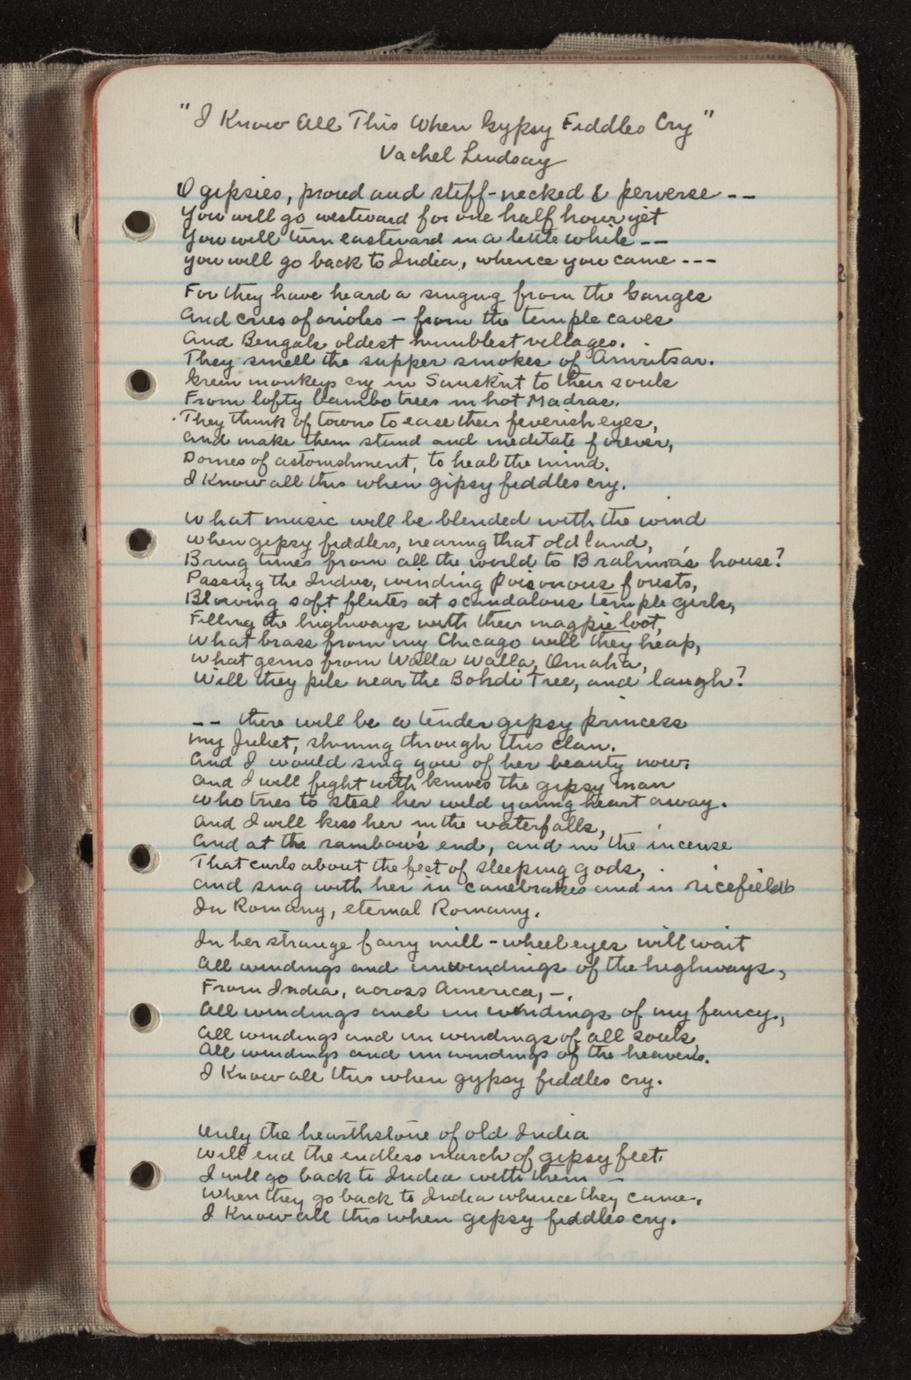 "I Know All This When Gypsy Fiddles Cry"
Vachel Lindsay
O gipsies, proud and stiff-necked & perverse --
You will go westward for one half hour yet
You will turn eastward in a little while --
you will go back to India, whence you came ---
For they have heard a singing from the Ganges
And cries of orioles - from the temple caves
And Bengals oldest humblest villages.
They smell the supper smokes of Amritsar.
Green monkeys cry in Sanskrit to their souls
From lofty bamboo trees in hot Madras.
They think of towns to ease their feverish eyes,
And make them stand and meditate forever,
Domes of astonishment, to heal the mind.
I Know all this when gipsy fiddles cry.
What music will be blended with the wind
When gipsy fiddlers, nearing that old land,
Bring tunes from all the world to Brahma's house?
Passing the Indus, winding poisonous forests,
Blowing soft flutes at scandalous temple girls,
Filling the highways with their magpie loot,
What brass from my Chicago will they heap,
What gems from Walla Walla, Omaha,
Will they pile near the Bohdi Tree, and laugh?
-- there will be a tender gipsy princess
My Juliet, shining through this clan.
And I would sing you of her beauty now.
And I will fight with knives the gipsy man
Who tries to steal her wild young heart away.
And I will kiss her in the waterfalls,
And at the rainbow's end, and in the incense
That curls about the feet of sleeping gods,
And sing with her in canebrakes and in ricefields
In Romany, eternal Romany.
In her strange fairy mill-wheel eyes will wait
All windings and unwindings of the highways,
From India, across America, -
All windings and unwindings of my fancy,
All windings and unwindings of all souls,
All windings and unwindings of the heavens.
I Know all this when gypsy fiddles cry.
Only the hearthstone of old India
Will end the endless march of gipsy feet.
I will go back to India with them -
When they go back to India whence they came,
I Know all this when gipsy fiddles cry.